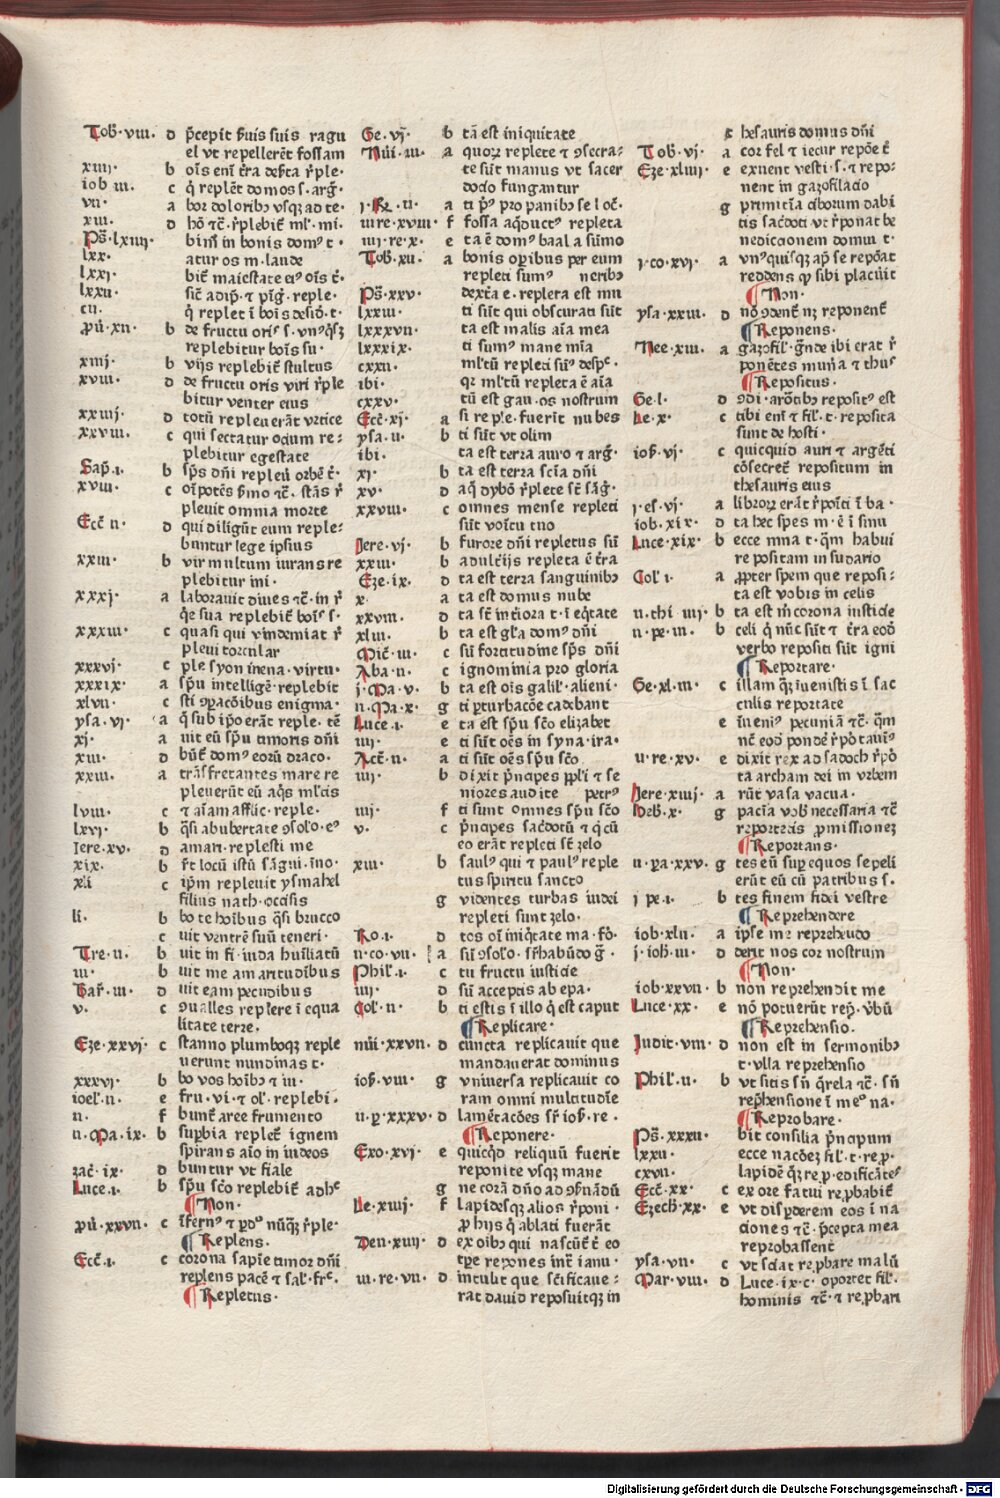 Tob̄·viii· d p̄cepit s̄uis suis ragu
el vt repellerēt fossam
xiii· b oīs enī t̄ra def̄ta r̄ple·
iob iii· c q̄ replēt domos s· arḡ·
vii· a bor doloribꝫ vsqꝫ ad te·
xii· d hō ⁊c̄· r̄plebit̄ ml̄· mi·
Ps̄·lxiiij· bim̄ in bonis domꝰ t·
lxx· atur os m· laude
lxxj· bit̄ maiestate eiꝰ oīs t̄·
lxxii· sic̄ adip̄· ⁊ pīḡ· reple·
cii· q̄ replet ī boīs desiō· t·
p̱ū·xii· b de fructu oris s· vnꝰqs̄qꝫ
replebitur boīs su·
xiiij· b vijs replebit̄ stultus
xviii· d de fructu oris viri r̄ple
bitur venter eius
xxiiij· d totū repleuerāt vrtice
xxviii· c qui sectatur ocium re⸗
plebitur egestate
Sap̄·i· b sp̄s dn̄i repleū orbē t̄·
xviii· c oīpotēs s̄mo ⁊c̄· stās r̄
pleuit omnia morte
Ecc̄ ii· d qui diligūt eum reple⸗
buntur lege ipsius
xxiii· b vir multum iurans re
plebitur ini·
xxxj· a laborauit diues ⁊c̄· in r̄
q̄e sua replebit̄ boīs s·
xxxiii· c quasi qui vindemiat r̄
pleui torcular
xxxvj· c ple syon inena· virtu·
xxxix· a sp̄u intelligē·replebit
xlvii· c sti ꝯpacōibus enigma·
ysa·vj· a q̄ sub ip̄o erāt reple· tē
xj· a uit eū sp̄u timoris dn̄i
xiii· d būt̄ domꝰ eorū draco·
xxiii· a trāsfretantes mare re
pleuerūt eū aq̄s ml̄tis
lviii· c ⁊ aīam afflic·reple·
lxvj· b q̄si abubertate ꝯsolo·eꝰ
Iere·xv· d amari·replesti me
xix· b st̄ locū istū sāgui·ino·
xli c ip̄m repleuit ysmahel
filius nath·occisis
li· b bo te hoībus q̄si brucco
c uit ventrē suū teneri·
Tre·ii· b uit in fi· iuda huīliatū
iii· b uit me amaritudibus
Bar̄·iii· d uit eam pecudibus
v· c ꝯualles replere ī equa
litate terre·
Eze·xxvj· c stanno plumboqꝫ reple
uerunt nundinas t·
xxxvj· b bo vos hoībꝫ ⁊ iu·
ioel̄·ii· e fru·vi·⁊ ol̄·replebi·
ii· f bunt̄ aree frumento
ii·Ma·ix· b sup̱bia replet̄ ignem
spirans aīo in iudeos
zac̄·ix· d buntur vt fiale
Luce·i· b sp̄u sc̄o replebit̄ adhᶜ
¶ Non·
p̱ū·xxvii· c īfernꝰ ⁊ p̱dᵒ nūqꝫ r̄ple·
¶ Replens·
Ecc̄·i· c corona sapīe timor dn̄i
replens pacē ⁊ sal̄·frᶜ·
¶ Repletus·
Ge·vj· b tā est iniquitate
Nūi·iii· a quoꝝ replete ⁊ ꝯsecra⸗
te sūt manus vt sacer
docio fungantur
j·R̄·ii· a ti p̄ꝰ pro panibꝫ se loc̄·
iiii re·xviii· f fossa aq̄ductꝰ repleta
iiij·re·x· e ta ē domꝰ baal a sūmo
Tob̄·xii· a bonis op̱ibus per eum
repleti sumꝰ nctibꝫ
Ps̄·xxv· dexƚa e·replera est mu
lxxiii· ti sūt qui obscurati sūt
lxxxvii· ta est malis aīa mea
lxxxix· ti sumꝰ mane mīa
cxxii· ml̄tū repleti suꝰ despᶜ·
ibi· qꝛ ml̄tū repleta ē aīa
cxxv· tū est gau·os nostrum
Ecc̄·xj· a si reple·fuerit nubes
ysa·ii· b ti sūt vt olim
ibi· ta est terra auro ⁊ arḡ·
xj· b ta est terra scīa dn̄i
xv· d aq̄ dybō r̄plete st̄ sāḡ·
xxviii· c omnes mense repleti
sūt voītu tuo
Iere·vj· b furore dn̄i repletus sū
xxiii· b adult̄ijs repleta ē t̄ra
Eze·ix· d ta est terra sanguinibꝫ
x· a ta est domus nube
xxviii· d ta st̄ int̄iora t·ī eq̄tate
xliii· b ta est gl̄a domꝰ dn̄i
Mic̄·iii· c sū fortitudine sp̄s dn̄i
Aba·ii· c ignominia pro gloria
j·Ma·v· b ta est oīs galil̄·alieni·
ii·Ma·x· g ti p̱turbacōe cadebant
Luce·i· e ta est sp̄u sc̄o elizabet
iiij· e ti sūt oēs in syna·ira·
Act̄·ii· a ti sūt oēs sp̄u sc̄o
iiij· b dixit p̄ncipes pp̄l̄i ⁊ se
niores audite petrꝰ
iiij· f ti sunt omnes sp̄u sc̄o
v· c p̄ncipes sacdotū ⁊ q̄ cū
eo erāt repleti st̄ zelo
xiii· b saulꝰ qui ⁊ paulꝰ reple
tus spiritu sancto
g videntes turbas iudei
repleti sunt zelo·
Ro·i· d tos oī iniq̄tate ma·fō·
ii·co·vii· a sū ꝯsolo·sr̄habūdo ḡ·
Phil̄·i· c tu fructu iusticie
iiij· d sū acceptis ab epa·
Col̄·ii· b ti estis ī illo q̄ est caput
¶ Replicare·
nūi·xxvii· d cuncta replicauit que
mandauerat dominus
iob̄·viii· g vniuersa replicauit co
ram omni multitudīe
ii·p̱ xxxv· d lamētacōes sr̄ iob̄·re·
¶ Reponere·
Exo·xvj· e quicq̄d reliquū fuerit
reponite vsqꝫ mane
g ne corā dn̄o ad ꝯs̄uādū
Le·xiiij· f lapidesqꝫ alios r̄poni·
ꝓ hijs q̄ ablati fuerāt
Deu·xiiij· d ex oibꝫ qui nascūt̄ t̄ eo
tp̱e repones int̄ ianu·
iii·re·vii· d intulit que sc̄ificaue⸗
rat dauid reposuitqꝫ in
thesauris domus dn̄i
Tob̄·vj· a cor fel ⁊ iecur repōe t̄
Eze·xliiij· e exuent vesti·s·⁊ repo⸗
nent in gazofilacio
g primitīa ciborum dabi
tis sac̄doti vt r̄ponat be
nedictionem domui t·
j·co·xvj· a vnꝰquisqꝫ ap̄ se repōat
reddens qꝫ sibi placuit
¶ Non·
ysa·xxiii· d nō ꝯdent̄ nꝫ reponent̄
¶ Reponens·
Nee·xiii· a gazofil̄·ḡnde ibi erat r̄
ponētes mun̄a ⁊ thuꝰ
¶ Repositus·
Ge·l· d ꝯdi·arōtibꝫ repositꝰ est
Le·x· c tibi enī ⁊ fil̄·t·reposita
sunt de hosti·
iob̄·vj· c quicquid auri ⁊ argēti
cōsecret̄ repositum in
thesauris eius
j·es·vj· a libroꝝ erāt r̄poīti ī ba·
iob·xix· d ta hec spes m·ē ī sinu
Luce·xix· b ecce mna t·q̄m habui
repositam in sudario
Col̄·i· a ꝓpter spem que reposi⸗
ta est vobis in celis
ii·thi·iiij· b ta est m̄ corona iusticie
ii·pe·iii· b celi q̄ nūc sūt ⁊ t̄ra eoꝺ̄
verbo repositi sūt igni
¶ Reportare·
Ge·xl·iii· c illam qꝫ īuenistis ī sac
culis reportate
e īuenīꝰ pecuniā ⁊c̄·q̄m
nc̄ eoꝺ̄ ponde r̄pōtauīꝰ
ii·re·xv· e dixit rex ad sadoch r̄pō
ta archam dei in vrbem
Iere·xiiij· a rūt vasa vacua·
Heb̄·x· g pacīa vob̄ necessaria ⁊c̄
reportetis ꝓmissionez
¶ Reportans·
ii·p̱a·xxv· g tes eū sup̱ equos sepeli
erūt eū cū patribus s·
j pe·i· b tes finem fidei vestre
¶ Reprehendere
iob·xlii· a ipse me reprehendo
j·ioh̄·iii· d derit nos cor nostrum
¶ Non·
iob·xxvii· b non reprehendit me
Luce·xx· e nō potuerūt rep̄·v̄bū
¶ Reprehensio·
Judit·viii· d non est in sermonibꝫ
t·vlla reprehensio
Phil̄·ii· b vt sitis sn̄ q̄rela ⁊c̄·sn̄
rep̄hensione ī meᵒ na·
¶ Reprobare·
Ps̄·xxxii· bit consilia p̄ncipum
lxxii· ecce nacōeꝫ fil̄·t·rep̱·
cxvii· lapidē qꝫ rep̱·edificāteˢ
Ecc̄·xx· c ex ore fatui rep̱babit̄
Ezech̄·xx· e vt disp̱derem eos ī na
ciones ⁊c̄·p̄cepta mea
reprobassent
ysa·vii· c vt sciat rep̱bare malū
Mar·viii· d Luce·ix·c·oportet fil̄·
hominis ⁊c̄·⁊ rep̱bari
Digitalisierung gefördert durch die Deutsche Forschungsgemeinschaft - DFG